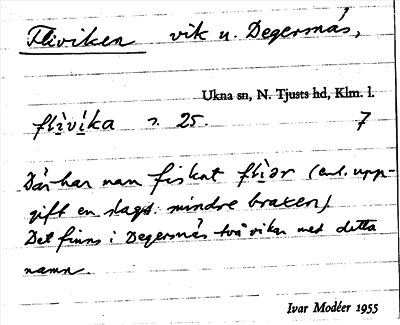 Fliviken vik u. Degersnäs,
Ukna sn, N. Tjusts hd, Klm. l.
flìvíka s. 25. 7
Där har man fiskat flìər (enl. upp-
gift en slags mindre braxen).
Det finns i Degersnäs två vikar med detta
namn.
Ivar Modéer 1955